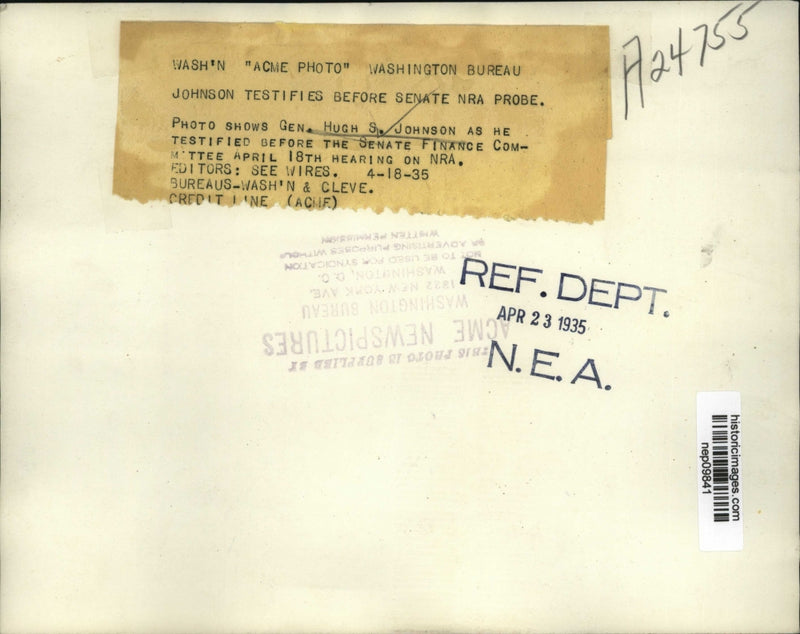 WASH'N "ACME PHOTO" WASHINGTON BUREAU
JOHNSON TESTIFIES BEFORE SENATE NRA PROBE.
PHOTO SHOWS GEN. HUGH S. JOHNSON AS HE
TESTIFIED BEFORE THE SENATE FINANCE COM-
MITTEE APRIL 18TH HEARING ON NRA.
EDITORS: SEE WIRES. 4-18-35
BUREAUS-WASH'N & CLEVE.
CREDIT LINE (ACME)
A24755
THIS PHOTO IS SUPPLIED BY
ACME NEWSPICTURES
WASHINGTON BUREAU
1322 NEW YORK AVE.
WASHINGTON, D. C.
NOT TO BE USED FOR SYNDICATION
OR ADVERTISING PURPOSES WITHOUT
WRITTEN PERMISSION
REF. DEPT.
APR 23 1935
N. E. A.
historicimages.com
nep09841